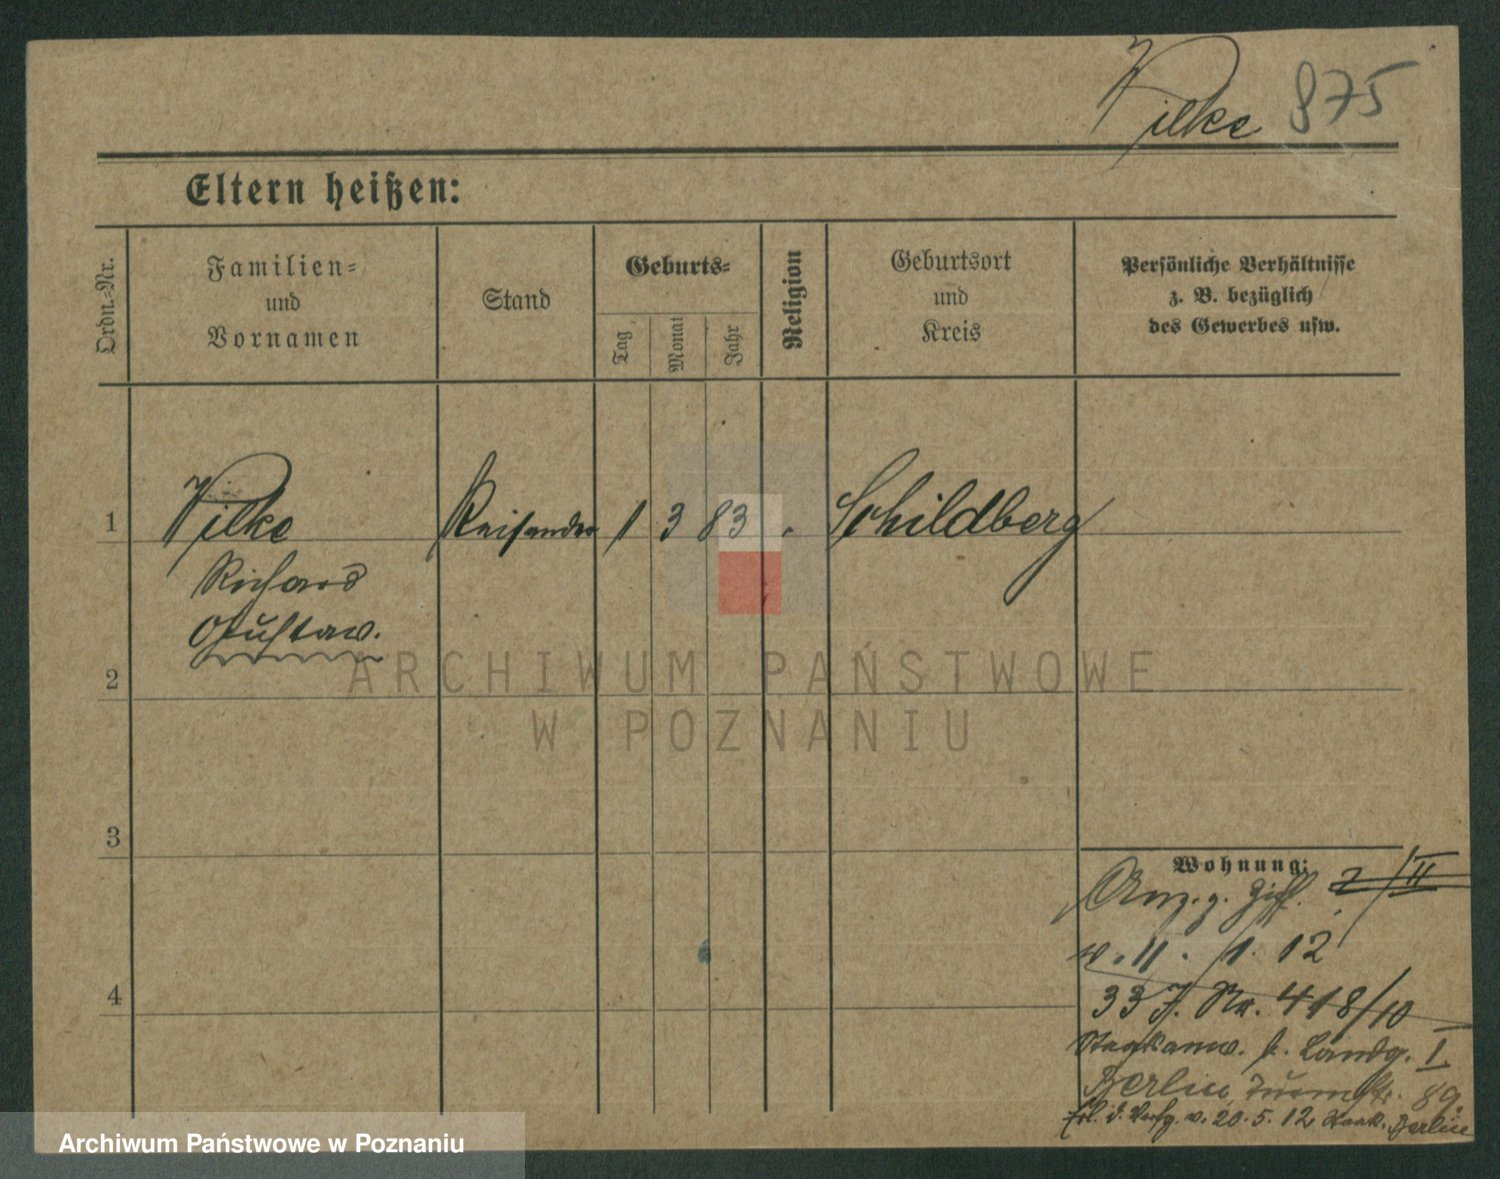 Wilke 875
Eltern heißen:
Ordn.-Nr.
Familien-
und
Vornamen
Stand
Geburts-
Tag
Monat
Jahr
Religion
Geburtsort
und
Kreis
Persönliche Verhältnisse
z. B. bezüglich
des Gewerbes usw.
1 Wilke Reisender 1 3 83 Schildberg
Richard
Gustav.
2
3
4
Wohnung:
Anz. z. Ziff. 2/II
v. 11. 1. 12
33 J. Nr. 418/10
Staatsanw. b. Landg. I.
Berlin, Turmstr. 89.
Erl. d. Verfg. v. 20. 5. 12 Berlin
ARCHIWUM PAŃSTWOWE
W POZNANIU
Archiwum Państwowe w Poznaniu